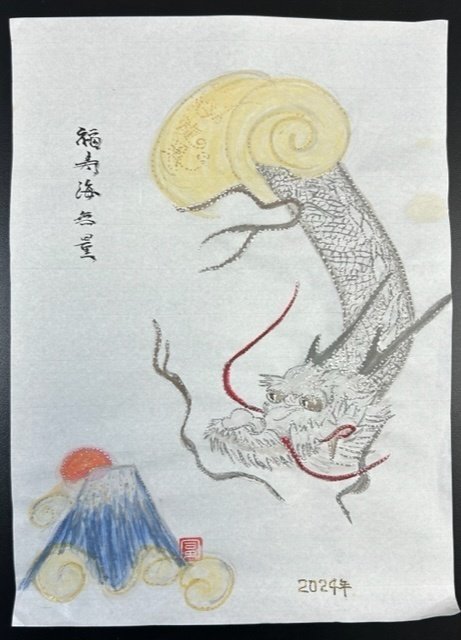 福寿海無量
2024年